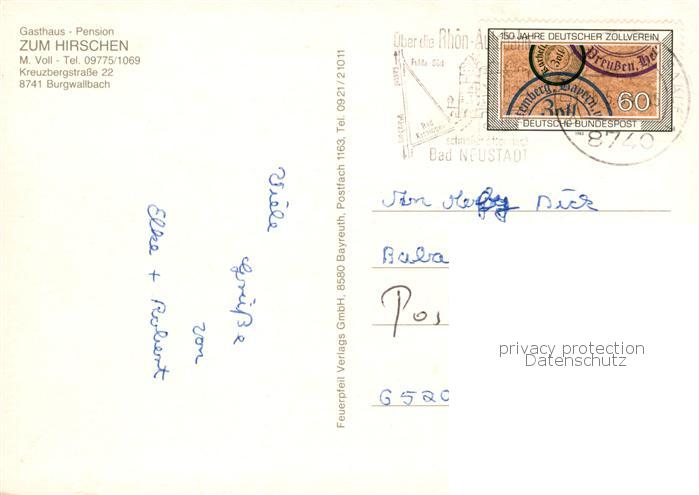 Gasthaus - Pension
ZUM HIRSCHEN
M. Voll - Tel. 09775/1069
Kreuzbergstraße 22
8741 Burgwallbach
Viele
Grüße
von
Elke + Robert
Feuerpfeil Verlags GmbH, 8580 Bayreuth, Postfach 1163, Tel. 0921 / 21011
Über die Rhön-Autobahn
Fulda-Süd
Bad
Kissingen
Bad NEUSTADT
150 JAHRE DEUTSCHER ZOLLVEREIN
Zoll
Preußen, He
emberg, Bayern, v
Zoll
60
DEUTSCHE BUNDESPOST
8740
Dick
Baba
Pos
6520
privacy protection
Datenschutz